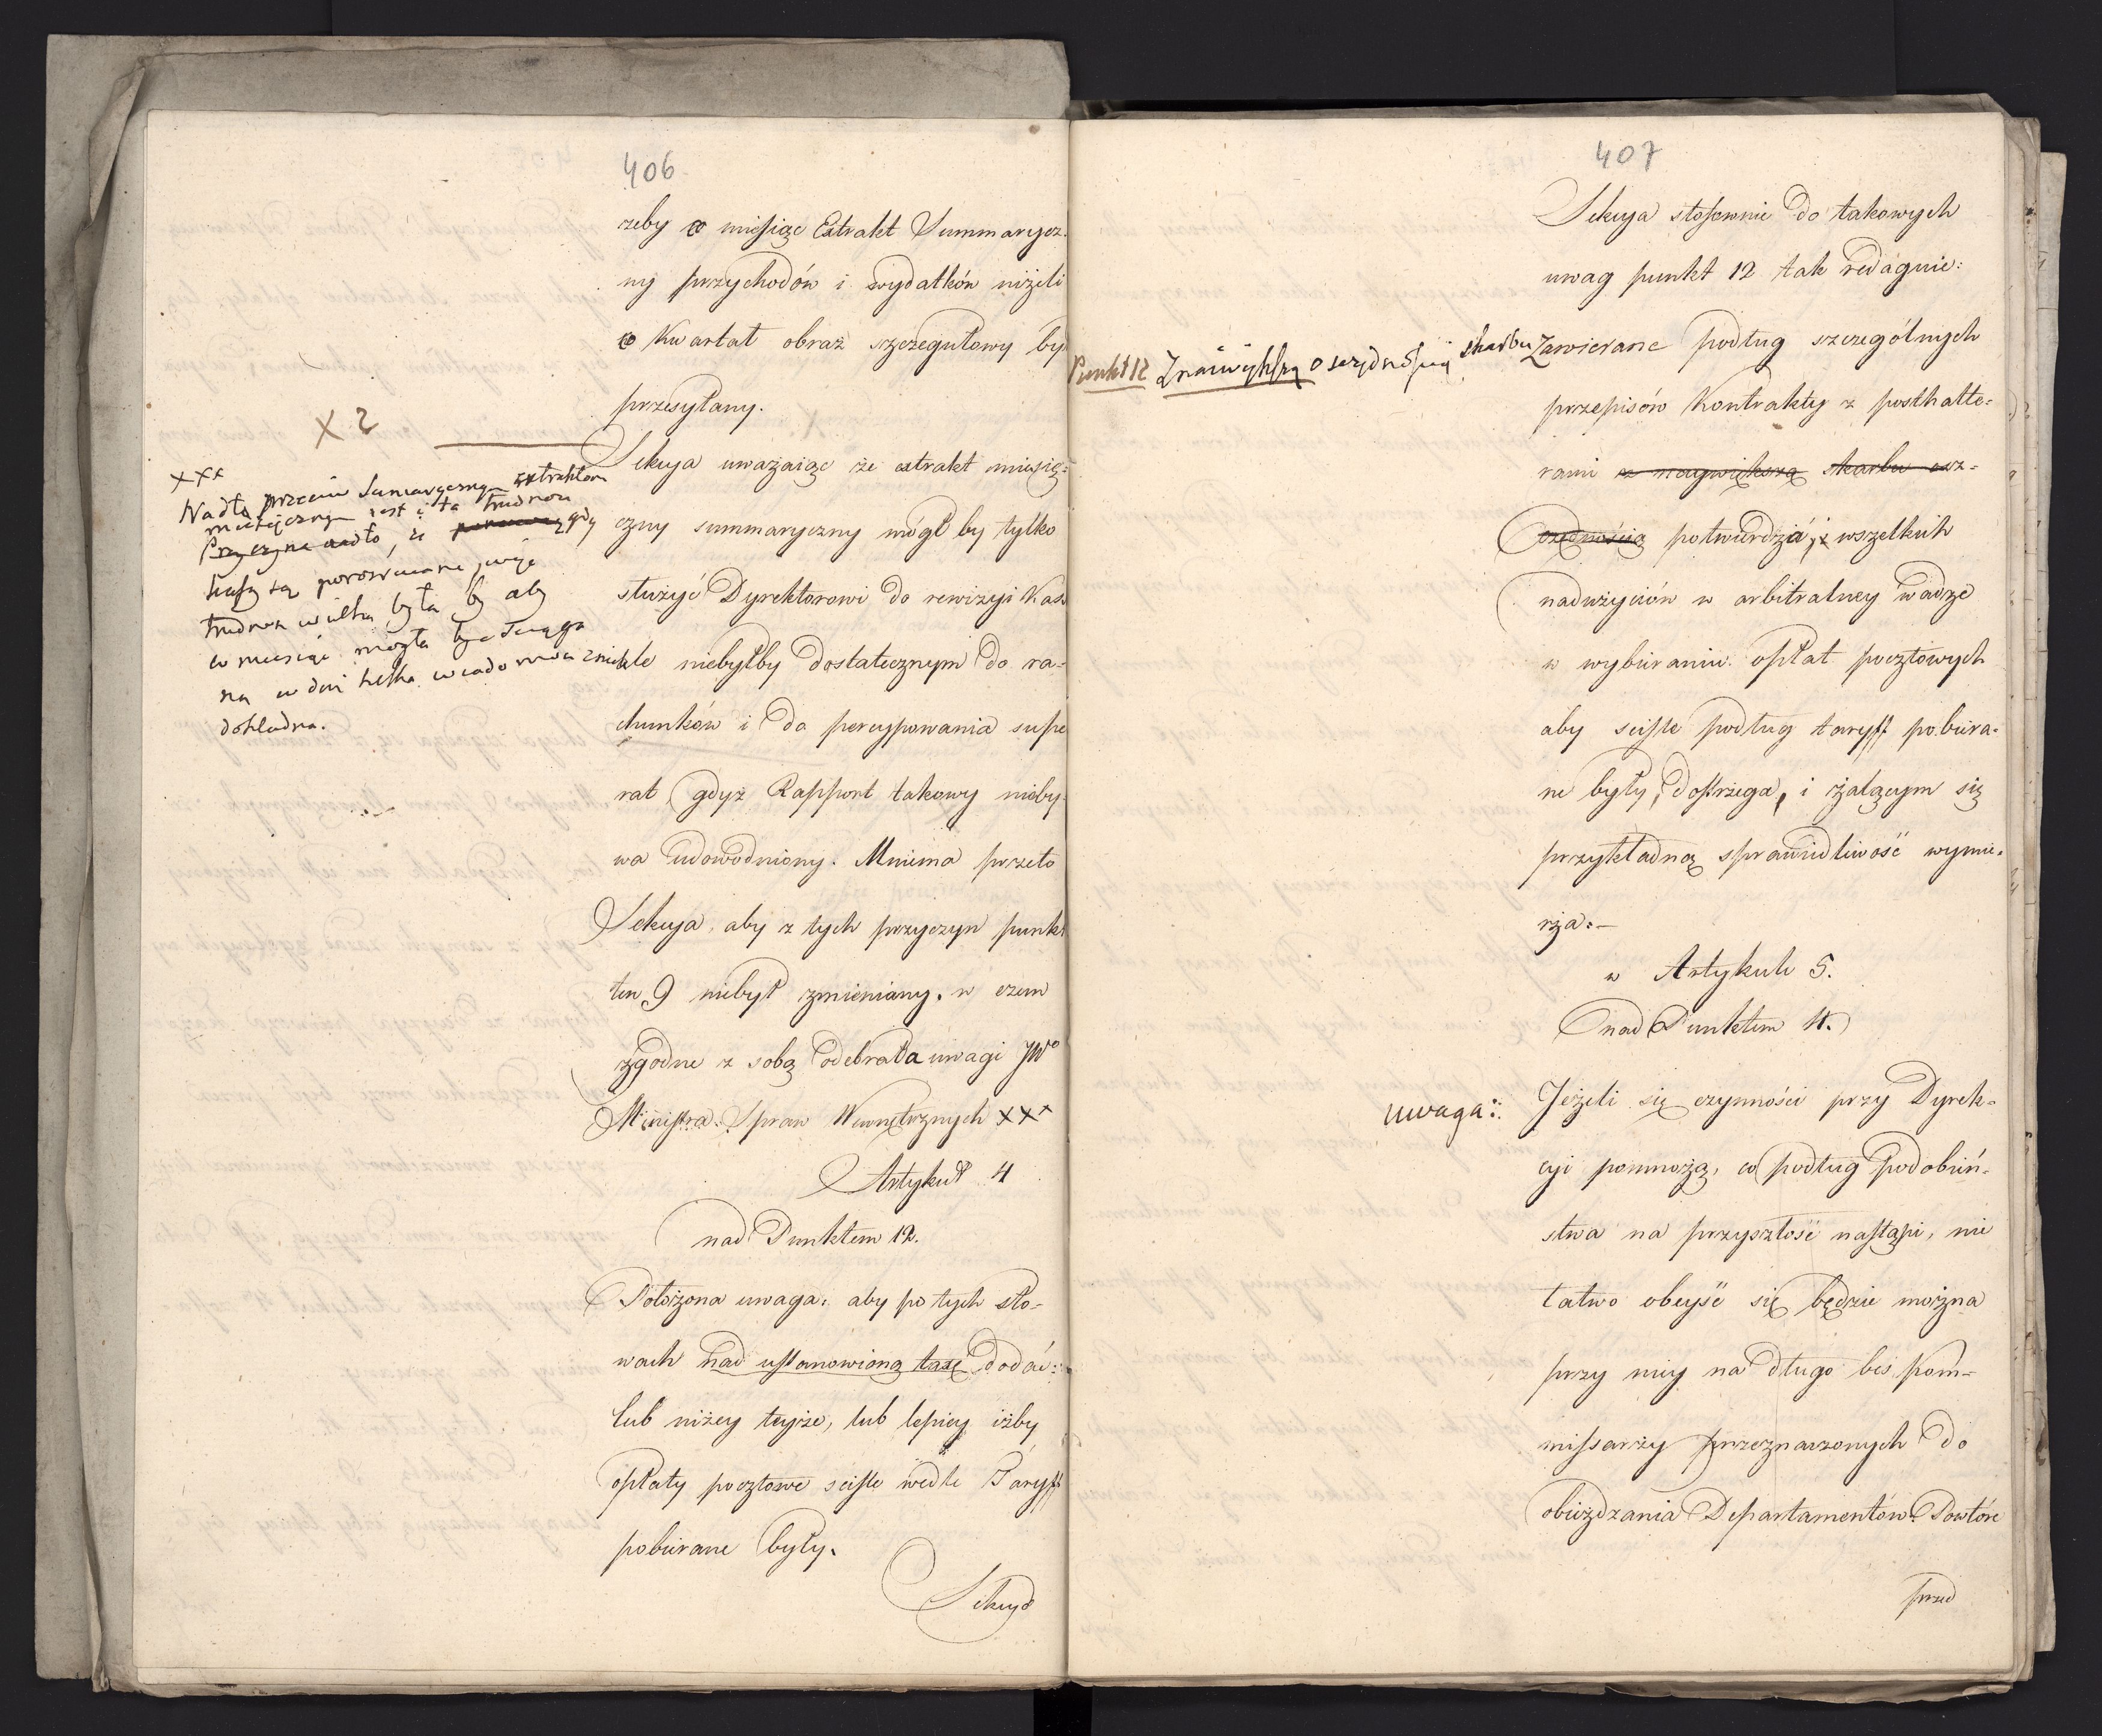 406
żeby co miesiąc Extrakt Summarycz-
ny przychodów i wydatków niżeli
co Kwartał obraz szczegułowy by
przesyłany.
X 2
Sekcya uważaiąc że extrakt miesię-
czny summaryczny mógł by tylko
służyć Dyrektorowi do rewizyi Kass
ale niebyłby dostatecznym do ra-
chunków i do percypowania supe
rat, gdyż Rapport takowy nieby-
wa udowodniony. Mniema przeto
Sekcya, aby z tych przyczyn punkt
ten 9 niebył zmieniany. w czem
zgodne z sobą odebrała uwagi JWo
Ministra Spraw Wewnętrznych xxx
xxx
Nadto przeciw Sumarycznym extraktom
miesięcznym iest i ta trudność
Przyczyna nadto, że gdy
kassy są porozrzucane, więc
trudność wielka była by aby
co miesiąc mogła być ściąga
na w dni kilka wiadomość z nich
dokładna.
Artykuł 4
nad Punktem 12.
Położona uwaga: aby po tych sło-
wach nad ustanowioną taxę dodać:
lub niżey teyże, lub lepiey iżby
opłaty pocztowe sciśle wedle Taryff
pobierane były.
Sekcya
407
Sekcya stosownie do takowych
uwag punkt 12 tak redaguie:
Punkt 12 Z naiwiększą oszczędnością skarbu
Zawierane podług szczególnych
przepisów Kontrakty z posthalte-
rami z naywiększą skarbu osz-
czędnością potwierdza, i wszelkich
nadużyciów w arbitralney władze
w wybieraniu opłat pocztowych
aby sciśle podług taryff pobiera-
ne były, dostrzega, i żalącym się
przykładną sprawiedliwość wymie-
rza.—
w Artykule 5.
nad Punktem 4.
uwaga:
Jeżeli się czynności przy Dyrek-
cyi pomnożą, co podług podobień-
stwa na przyszłość nastąpi, nie
łatwo obeyść się będzie można
przy niey na długo bes Kom-
missarzy przeznaczonych do
obieżdzania Departamentów. Powtóre
przed